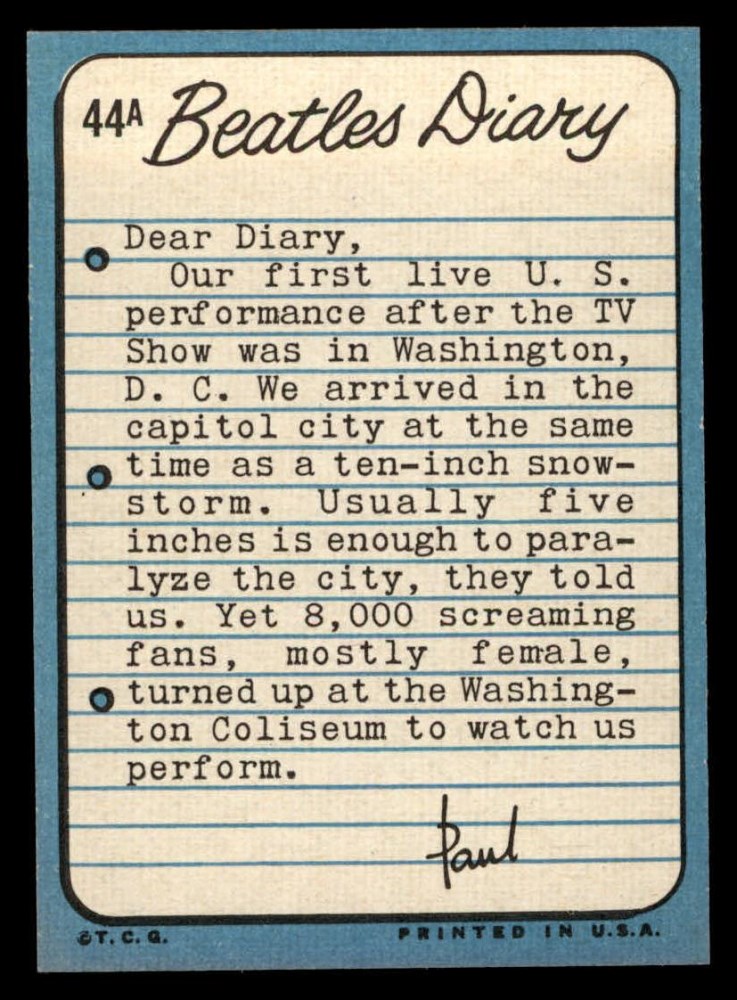 44A Beatles Diary
Dear Diary,
Our first live U. S.
performance after the TV
Show was in Washington,
D. C. We arrived in the
capitol city at the same
time as a ten-inch snow-
storm. Usually five
inches is enough to para-
lyze the city, they told
us. Yet 8,000 screaming
fans, mostly female,
turned up at the Washing-
ton Coliseum to watch us
perform.
Paul
©T. C. G. PRINTED IN U.S.A.